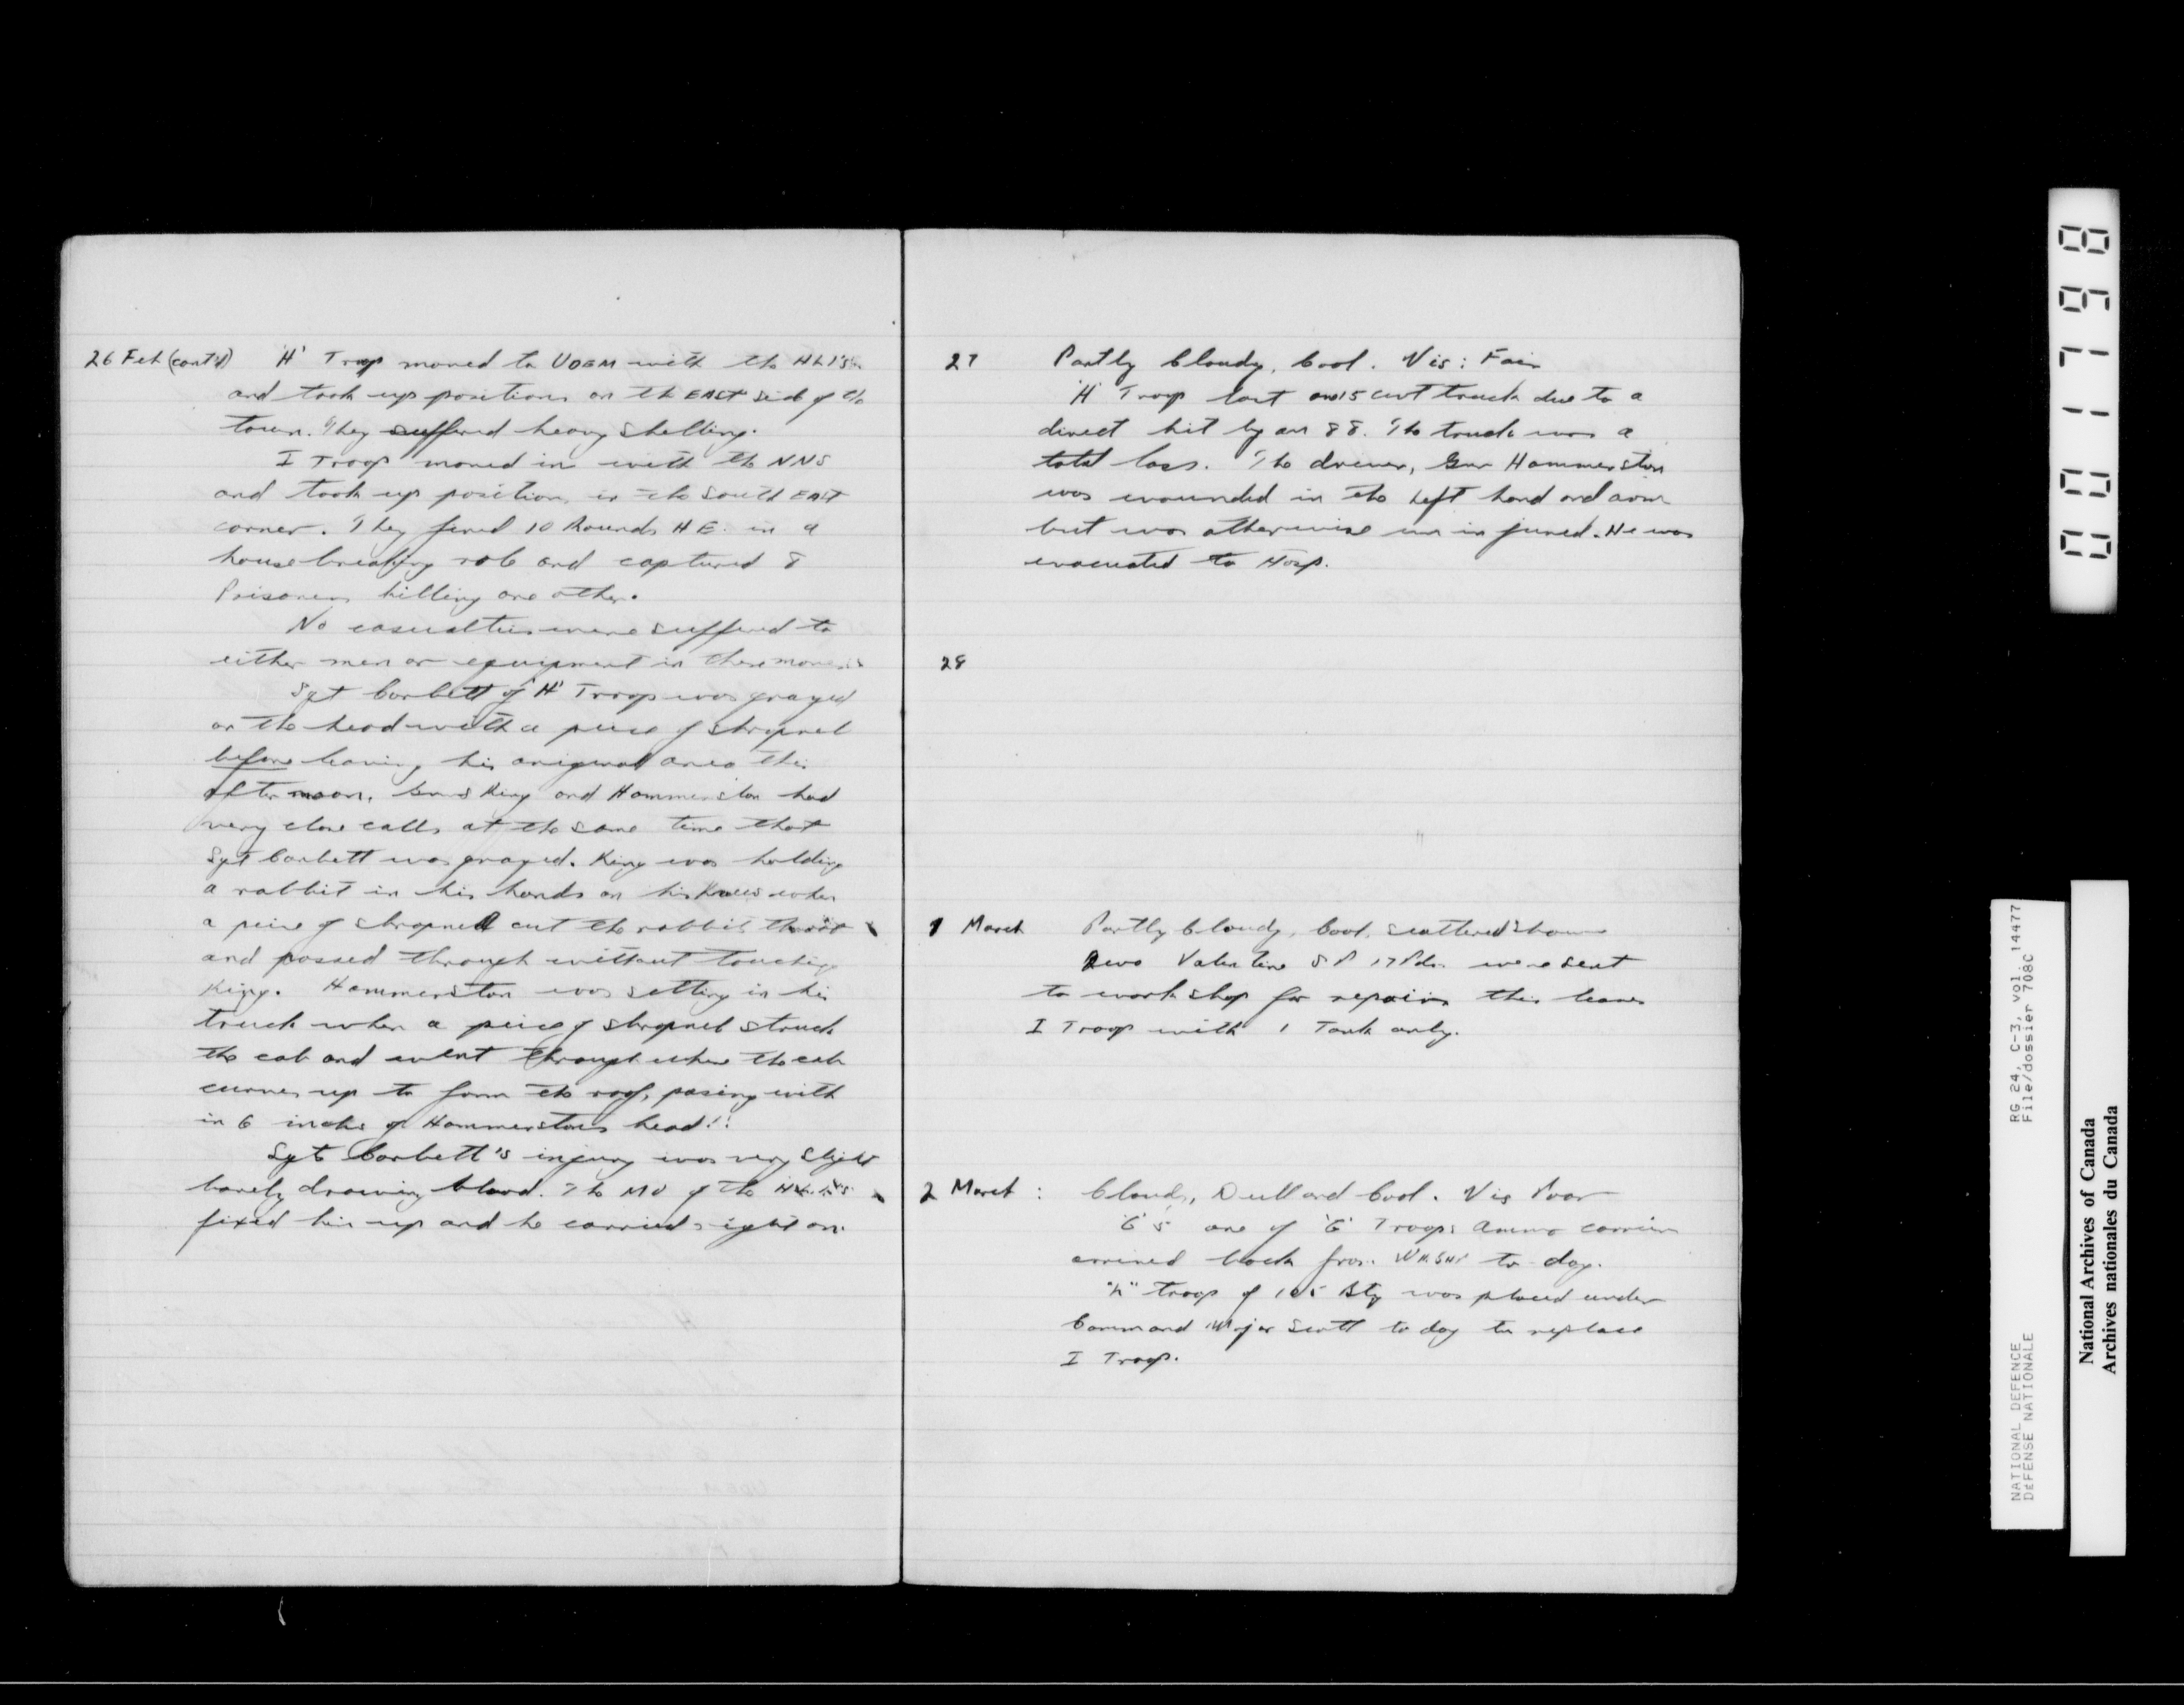 26 Feb (cont'd) 'H' Troop moved to UDEM with the HLI's
and took up positions on the EAST side of the
town. They suffered heavy shelling.
I Troop moved in with the NNS
and took up position in the South EAST
corner. They fired 10 Rounds H E. in a
house breaking role and captured 8
Prisoners killing one other.
No casualties were suffered to
either men or equipment in these moves
Sgt Corbett of 'H' Troop was grazed
on the head with a peice of shrapnel
before leaving his original area this
afternoon. Gnrs King and Hammerston had
very close calls at the same time that
Sgt Corbett was grazed. King was holding
a rabbit in his hands on his Knees when
a peice of shrapnell cut the rabbits throat
and passed through without touching
King. Hammerston was setting in his
truck when a peice of shrapnel struck
the cab and went through where the cab
curves up to form the roof, pasing with
in 6 inches of Hammerstons head!!
Sgt Corbett's injury was very slight
barely drawing blood. The MO of the
fixed him up and he carried right on.
27 Partly Cloudy, Cool. Vis: Fair
'H' Troop lost one 15 cwt truck due to a
direct hit by an 88. The truck was a
total loss. The driver, Gnr Hammerston
was wounded in the Left hand and arm
but was otherwise un injured. He was
evacuated to Hosp.
28
1 March Partly Cloudy, Cool, scattered showers
Two Valentine S P 17 Pdrs were sent
to work shop for repairs this leaves
I Troop with 1 Tank only.
2 March : Cloudy, Dull and Cool. Vis Poor
'G' 5 one of 'G' Troops Ammo carriers
arrived back from WKSHP to-day.
troop of 105 Bty was placed under
Command Major Scott to day to replace
I Troop.
001798
RG 24, C-3, vol. 14477
File/dossier 708C
NATIONAL DEFENCE
DÉFENSE NATIONALE
National Archives of Canada
Archives nationales du Canada